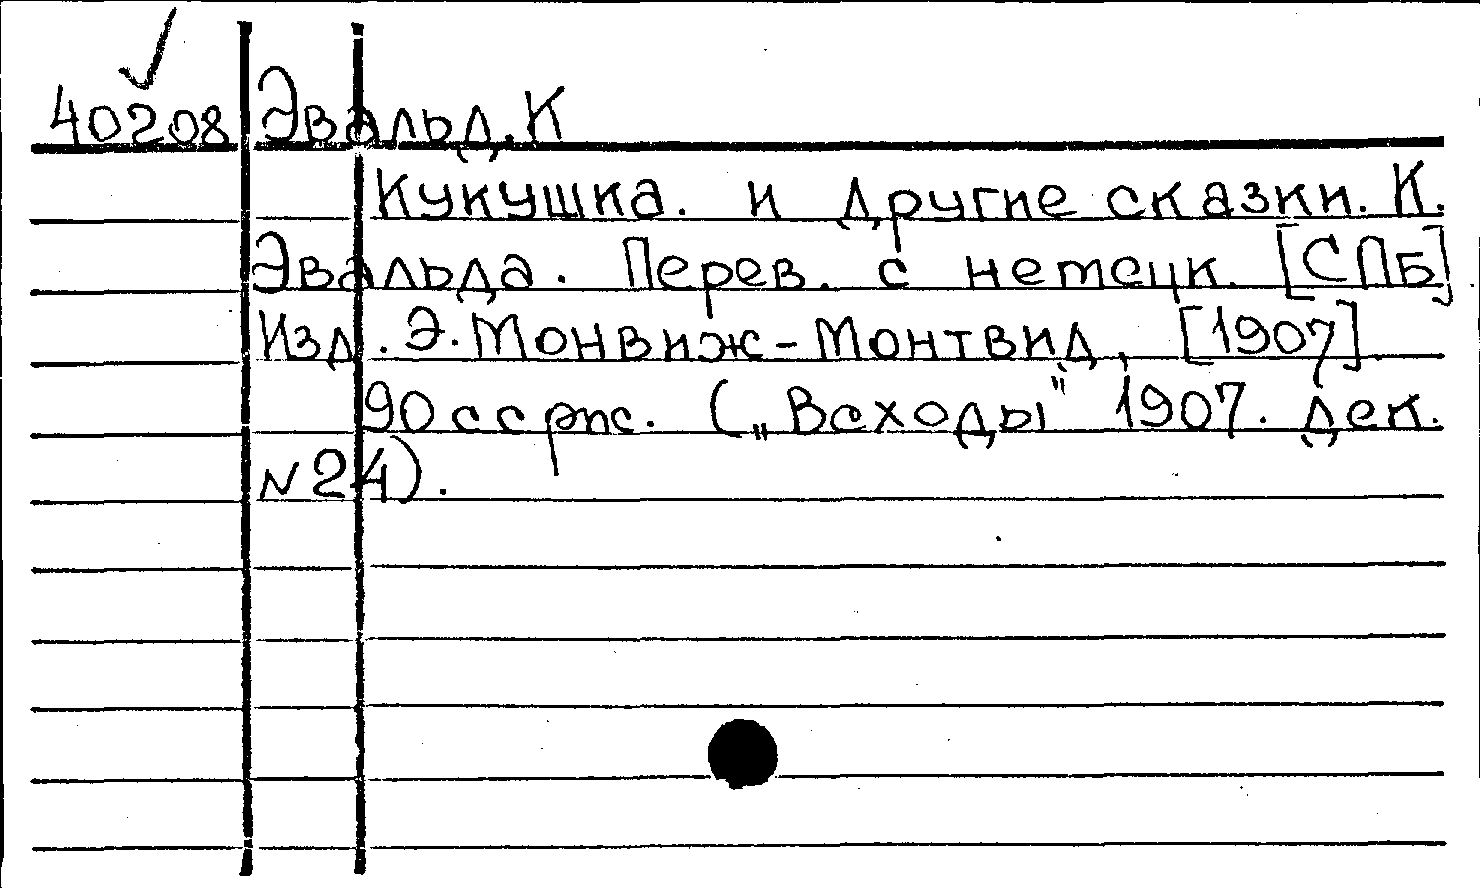 40208 Эвальд. К
Кукушка. и другие сказки. К.
Эвальда. Перев. с немецк. [СПБ]
Изд. Э. Монвиж-Монтвид, [1907]
90 с с рис. („Всходы" 1907. дек.
N24).